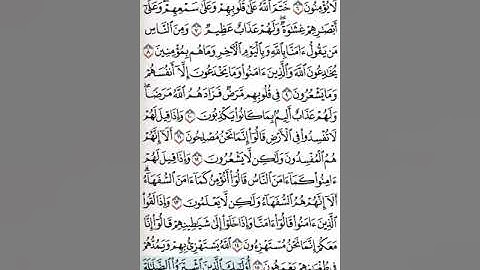 لَا يُؤْمِنُونَ ٦ خَتَمَ ٱللَّهُ عَلَىٰ قُلُوبِهِمْ وَعَلَىٰ سَمْعِهِمْ وَعَلَىٰٓ
أَبْصَٰرِهِمْ غِشَٰوَةٌ وَلَهُمْ عَذَابٌ عَظِيمٌ ٧ وَمِنَ ٱلنَّاسِ
مَن يَقُولُ ءَامَنَّا بِٱللَّهِ وَبِٱلْيَوْمِ ٱلْءَاخِرِ وَمَا هُم بِمُؤْمِنِينَ ٨
يُخَٰدِعُونَ ٱللَّهَ وَٱلَّذِينَ ءَامَنُوا۟ وَمَا يَخْدَعُونَ إِلَّآ أَنفُسَهُمْ
وَمَا يَشْعُرُونَ ٩ فِى قُلُوبِهِم مَّرَضٌ فَزَادَهُمُ ٱللَّهُ مَرَضًا ۖ
وَلَهُمْ عَذَابٌ أَلِيمٌۢ بِمَا كَانُوا۟ يَكْذِبُونَ ١٠ وَإِذَا قِيلَ لَهُمْ
لَا تُفْسِدُوا۟ فِى ٱلْأَرْضِ قَالُوٓا۟ إِنَّمَا نَحْنُ مُصْلِحُونَ ١١ أَلَآ إِنَّهُمْ
هُمُ ٱلْمُفْسِدُونَ وَلَٰكِن لَّا يَشْعُرُونَ ١٢ وَإِذَا قِيلَ لَهُمْ
ءَامِنُوا۟ كَمَآ ءَامَنَ ٱلنَّاسُ قَالُوٓا۟ أَنُؤْمِنُ كَمَآ ءَامَنَ ٱلسُّفَهَآءُ ۗ
أَلَآ إِنَّهُمْ هُمُ ٱلسُّفَهَآءُ وَلَٰكِن لَّا يَعْلَمُونَ ١٣ وَإِذَا لَقُوا۟
ٱلَّذِينَ ءَامَنُوا۟ قَالُوٓا۟ ءَامَنَّا وَإِذَا خَلَوْا۟ إِلَىٰ شَيَٰطِينِهِمْ قَالُوٓا۟ إِنَّا
مَعَكُمْ إِنَّمَا نَحْنُ مُسْتَهْزِءُونَ ١٤ ٱللَّهُ يَسْتَهْزِئُ بِهِمْ وَيَمُدُّهُمْ
فِى طُغْيَٰنِهِمْ يَعْمَهُونَ ١٥ أُو۟لَٰٓئِكَ ٱلَّذِينَ ٱشْتَرَوُا۟ ٱلضَّلَٰلَةَ